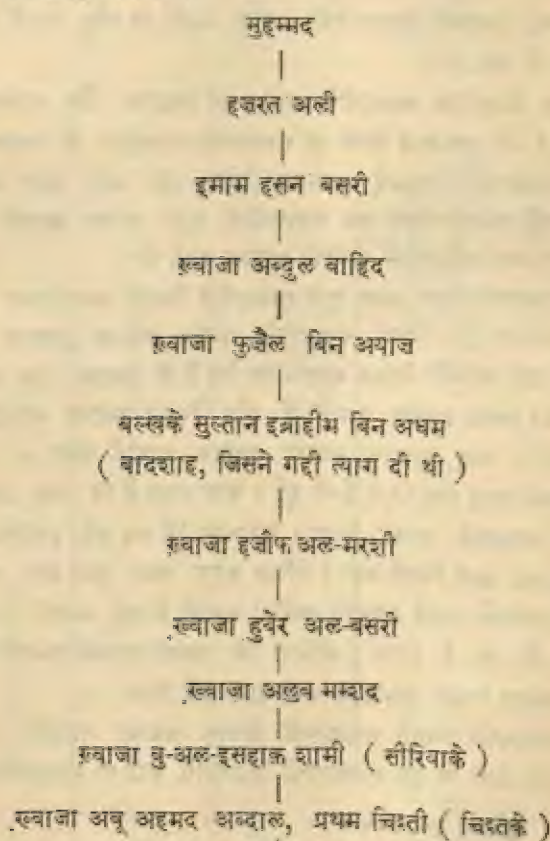 मुहम्मद
हज़रत अली
इमाम हसन बसरी
ख़्वाजा अब्दुल वाहिद
ख़्वाजा फ़ुज़ैल बिन अयाज़
बल्खके सुल्तान इब्राहीम बिन अधम
( बादशाह, जिसने गद्दी त्याग दी थी )
ख़्वाजा हज़ीफ अल-मरशी
ख़्वाजा हुबेर अल-बसरी
ख़्वाजा अलुव मम्शद
ख़्वाजा बु-अल-इसहाक़ शामी ( सीरियाके )
ख़्वाजा अबू अहमद अब्दाल, प्रथम चिश्ती ( चिश्तके )